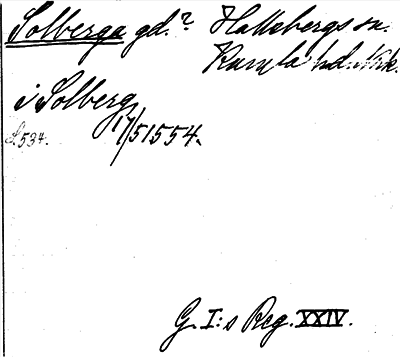 Solberga gd.? Hallebergs sn.
Kumla hd. Närk.
i Solberg
S.534. 17/5 1554.
G. I:s Reg. XXIV.